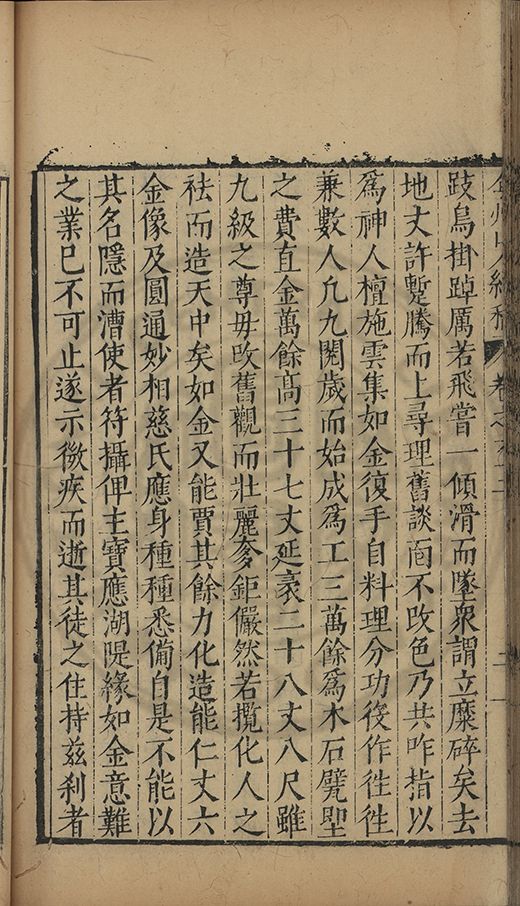 州山人續稿 卷之
跂鳥掛踔厲若飛嘗一傾滑而墜衆謂立糜碎矣去
地丈許蹔騰而上尋理舊談靣不攺色乃共咋指以
爲神人檀施雲集如金復手自料理分功役作徃徃
兼數人凢九閱歲而始成爲工三萬餘爲木石甓堊
之費直金萬餘髙三十七丈延袤二十八丈八尺雖
九級之尊毋攺舊觀而壯麗奓鉅儼然若攬化人之
袪而造天中矣如金又能賈其餘力化造能仁丈六
金像及圓通妙相慈氏應身種種悉俻自是不能以
其名隱而漕使者符攝俾主寶應湖隄緣如金意難
之業巳不可止遂示微疾而逝其徒之住持茲刹者